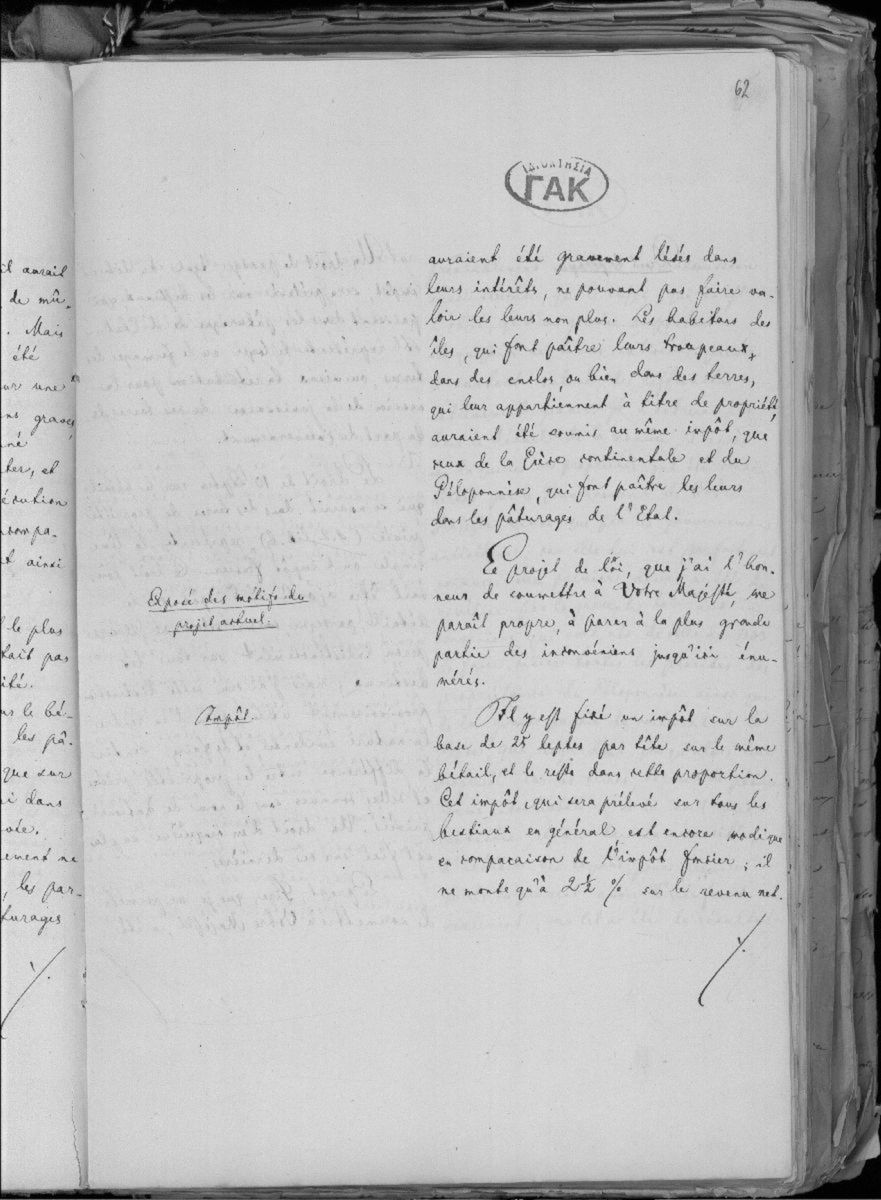 62
ΙΔΙΟΚΤΗΣΙΑ
ΓΑΚ
auraient été gravement lésés dans
leurs intérêts, ne pouvant pas faire va-
loir les leurs non plus. Les habitans des
îles, qui font paître leurs troupeaux,
dans des enclos, ou bien dans des terres,
qui leur appartiennent à titre de propriété,
auraient été soumis au même impôt, que
ceux de la Grèce continentale et du
Péloponnèse, qui font paître les leurs
dans les pâturages de l'Etat.
Exposé des motifs du
projet actuel.
Ce projet de loi, que j'ai l'hon-
neur de soumettre à Votre Majesté, me
paraît propre, à parer à la plus grande
partie des inconvéniens jusqu'ici énu-
mérés.
Impôt.
Il y est fixé un impôt sur la
base de 25 leptes par tête sur le même
bétail, et le reste dans cette proportion.
Cet impôt, qui sera prélevé sur tous les
bestiaux en général est encore modique
en comparaison de l'impôt foncier; il
ne monte qu'à 2½ % sur le revenu net.
./.
il aurait
de mû-
. Mais
été
ur une
ns graves
né
ter, et
écution
compa-
t ainsi
l le plus
tait pas
ité.
ns le bé-
les pâ-
que sur
i dans
vée.
ement ne
, les par-
turages
./.